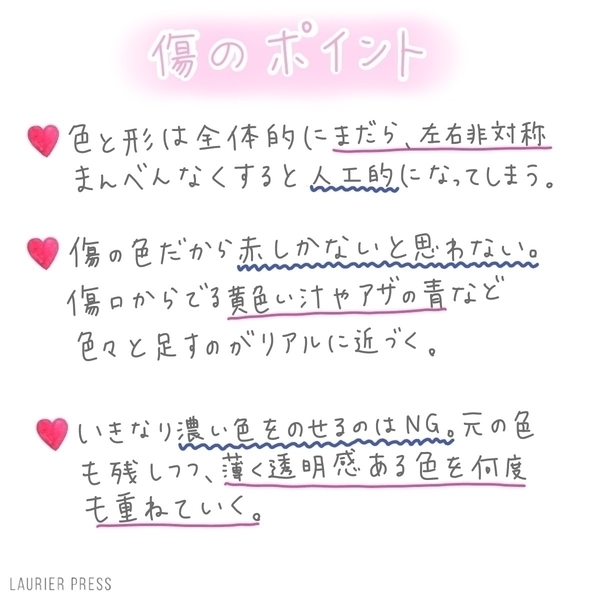 傷のポイント
色と形は全体的にまだら、左右非対称
まんべんなくすると人工的になってしまう。
傷の色だから赤しかないと思わない。
傷口からでる黄色い汁やアザの青など
色々と足すのがリアルに近づく。
いきなり濃い色をのせるのはNG。元の色
も残しつつ、薄く透明感ある色を何度
も重ねていく。
LAURIER PRESS